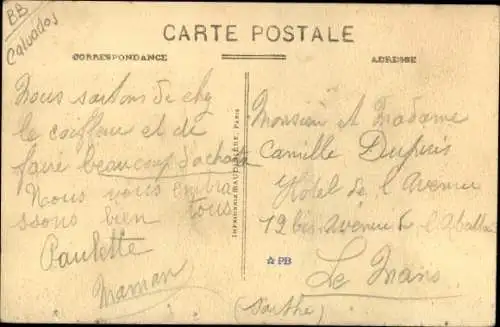 BB
Calvados
CARTE POSTALE
CORRESPONDANCE
ADRESSE
Nous sortons de chez
le coiffeur et de
faire beaucoup d'achats
Nous vous embra
ssons bien tous
Paulette
Maman
IMPRIMERIE BAUDINIÈRE, PARIS
Monsieur et Madame
Camille Dupuis
Hôtel de l'Avenue
12 bis Avenue de l'Abattoir
Le Mans
(Sarthe)
☆PB